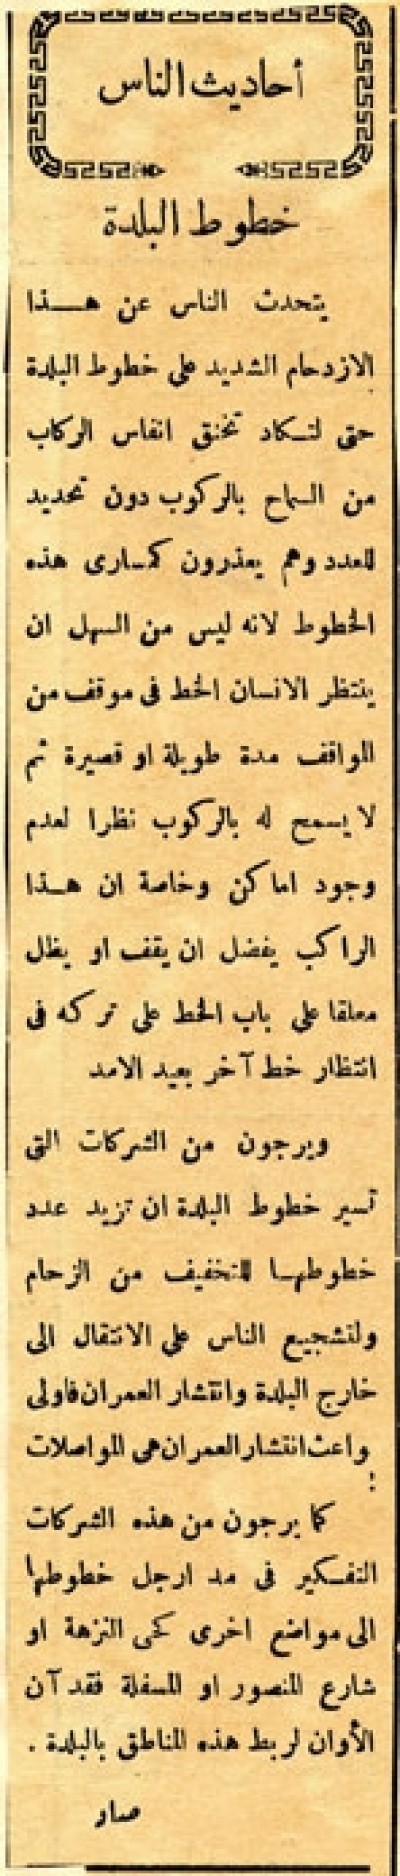 أحاديث الناس
خطوط البلدة
يتحدث الناس عن هــذا
الازدحام الشديد على خطوط البلدة
حتى لتكاد تختنق انفاس الركاب
من السماح بالركوب دون تحديد
للعدد وهم يعذرون كمسارى هذه
الخطوط لانه ليس من السهل ان
ينتظر الانسان الخط فى موقف من
المواقف مدة طويلة او قصيرة ثم
لا يسمح له بالركوب نظرا لعدم
وجود اماكن وخاصة ان هــذا
الراكب يفضل ان يقف او يظل
معلقا على باب الخط على تركه فى
انتظار خط آخر بعيد الامد
ويرجون من الشركات التى
تسير خطوط البلدة ان تزيد عدد
خطوطهــا للتخفيف من الزحام
ولتشجيع الناس على الانتقال الى
خارج البلدة وانتشار العمران فاولى
انتشار العمران هى المواصلات
!
كما يرجون من هذه الشركات
التفكير فى مد ارجل خطوطها
الى مواضع اخرى كحى النزهة او
شارع المنصور او المسفلة فقد آن
الأوان لربط هذه المناطق بالبلدة .
صار